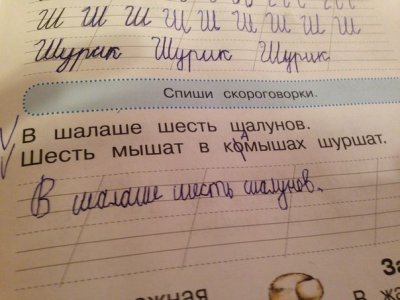 Ш Ш Ш Ш Ш Ш Ш Ш
Шурик Шурик Шурик
Спиши скороговорки.
В шалаше шесть шалунов.
Шесть мышат в камышах шуршат.
В шалаше шесть шалунов.